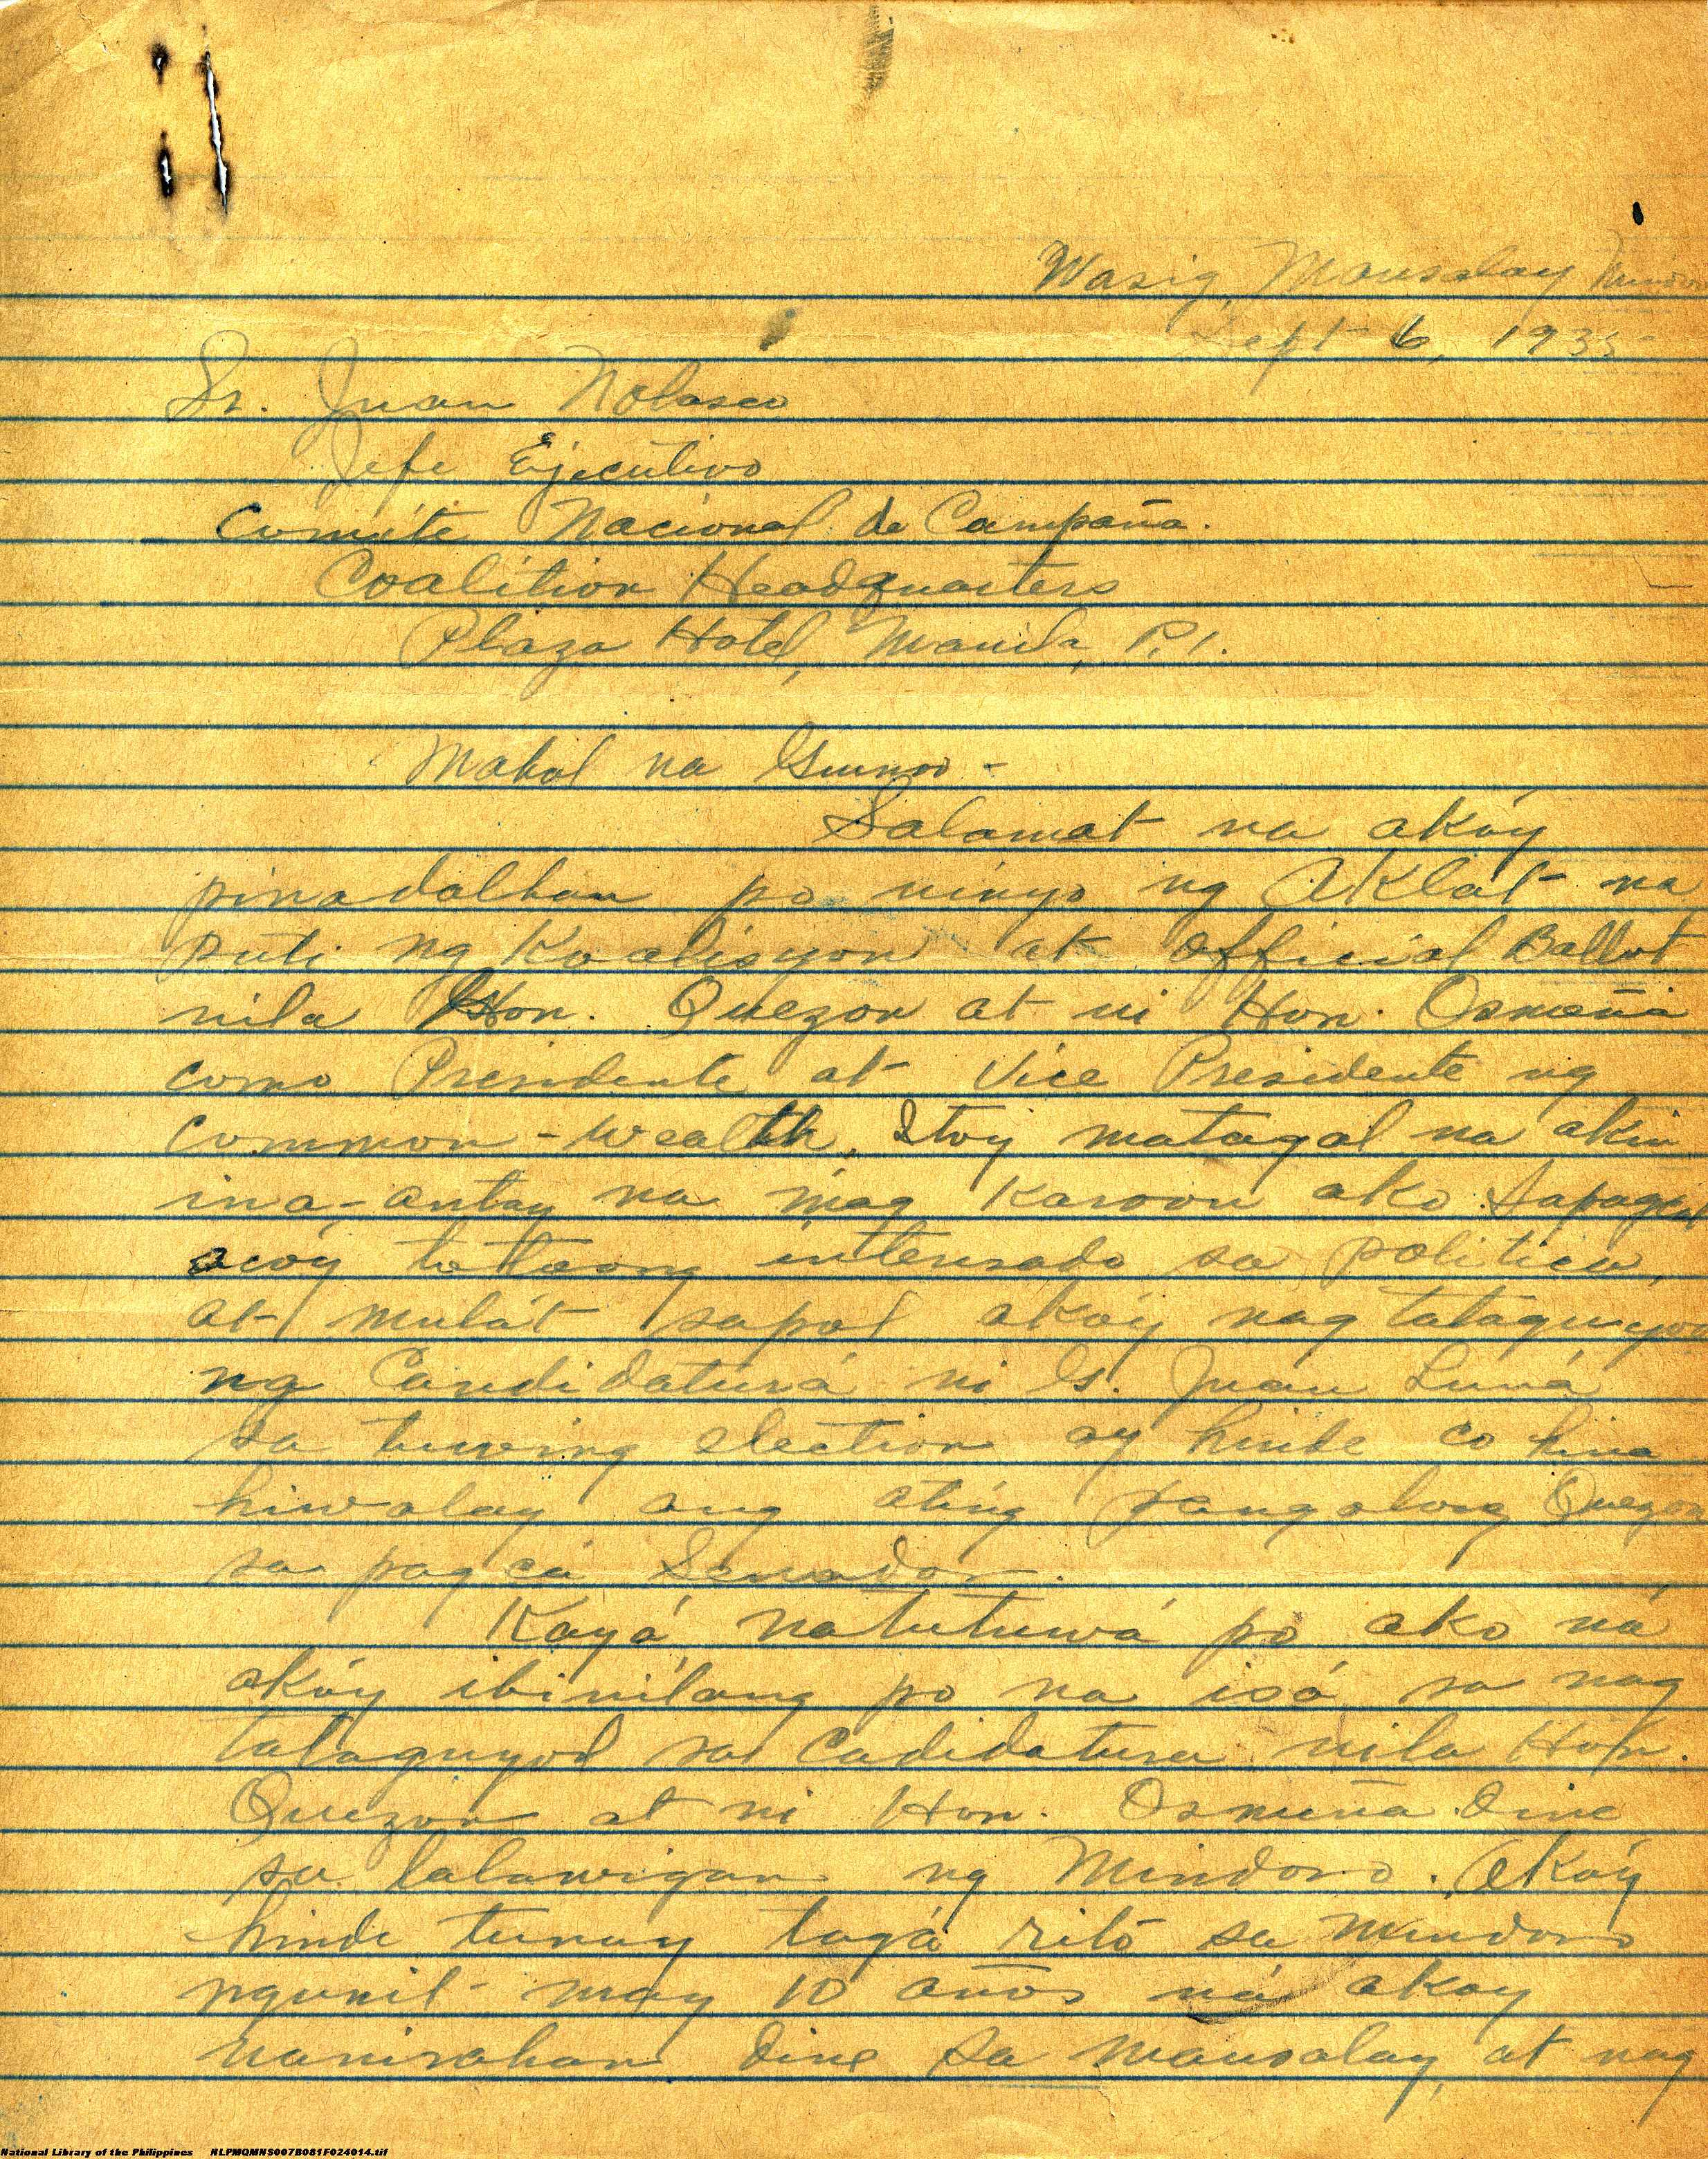 Wasig, Mansalay Mindoro
Sept 6, 1935
Sr. Juan Nolasco
Jefe Ejecutivo
Comite Nacional de Campaña.
Coalition Headquarters
Plaza Hotel, Manila, P.I.
Mahal na Guinoo -
Salamat na akóy
pinadalhan po ninyo ng Aklat na
puti ng Koalisyon at official Ballot
nila Hon. Quezon at ni Hon. Osmeña
como Presidente at Vice Presidente ng
Common-wealth. Itoy matagal na akin
ina-antay na mag karoon ako. Sapagcat
acóy totoong interesado sa politica,
at mulát sapol akóy nag tataguyod
ng Candidaturá ni G. Juan Luná
sa tuwing election ay hinde co hina
hiwalay ang ating pangalong Quezon
sa pag cá Senador.
Kayá natutuwá po ako na
akóy ibinilang po na isá sa nag
tataguyod sa Cadidatura nila Hon.
Quezon at ni Hon. Osmeña dine
sa lalawigan ng Mindoro. Akóy
hinde tunay tagá ritó sa Mindoro
ngunit may 10 años ná akoy
nanirahan dine sa Mansalay, at nag
National Library of the Philippines NLPMQMNS007B081F024014.tif